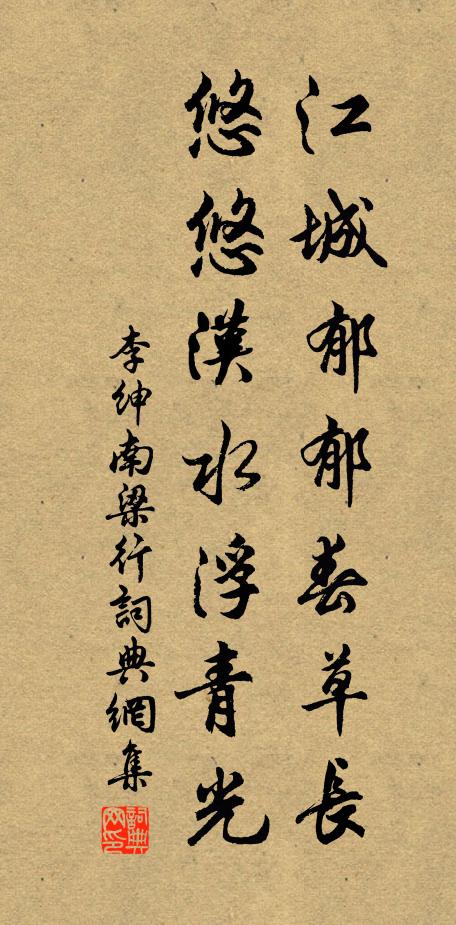 江城郁郁春草長
悠悠漢水浮青光
李紳南梁行詞典網集
詞典网印